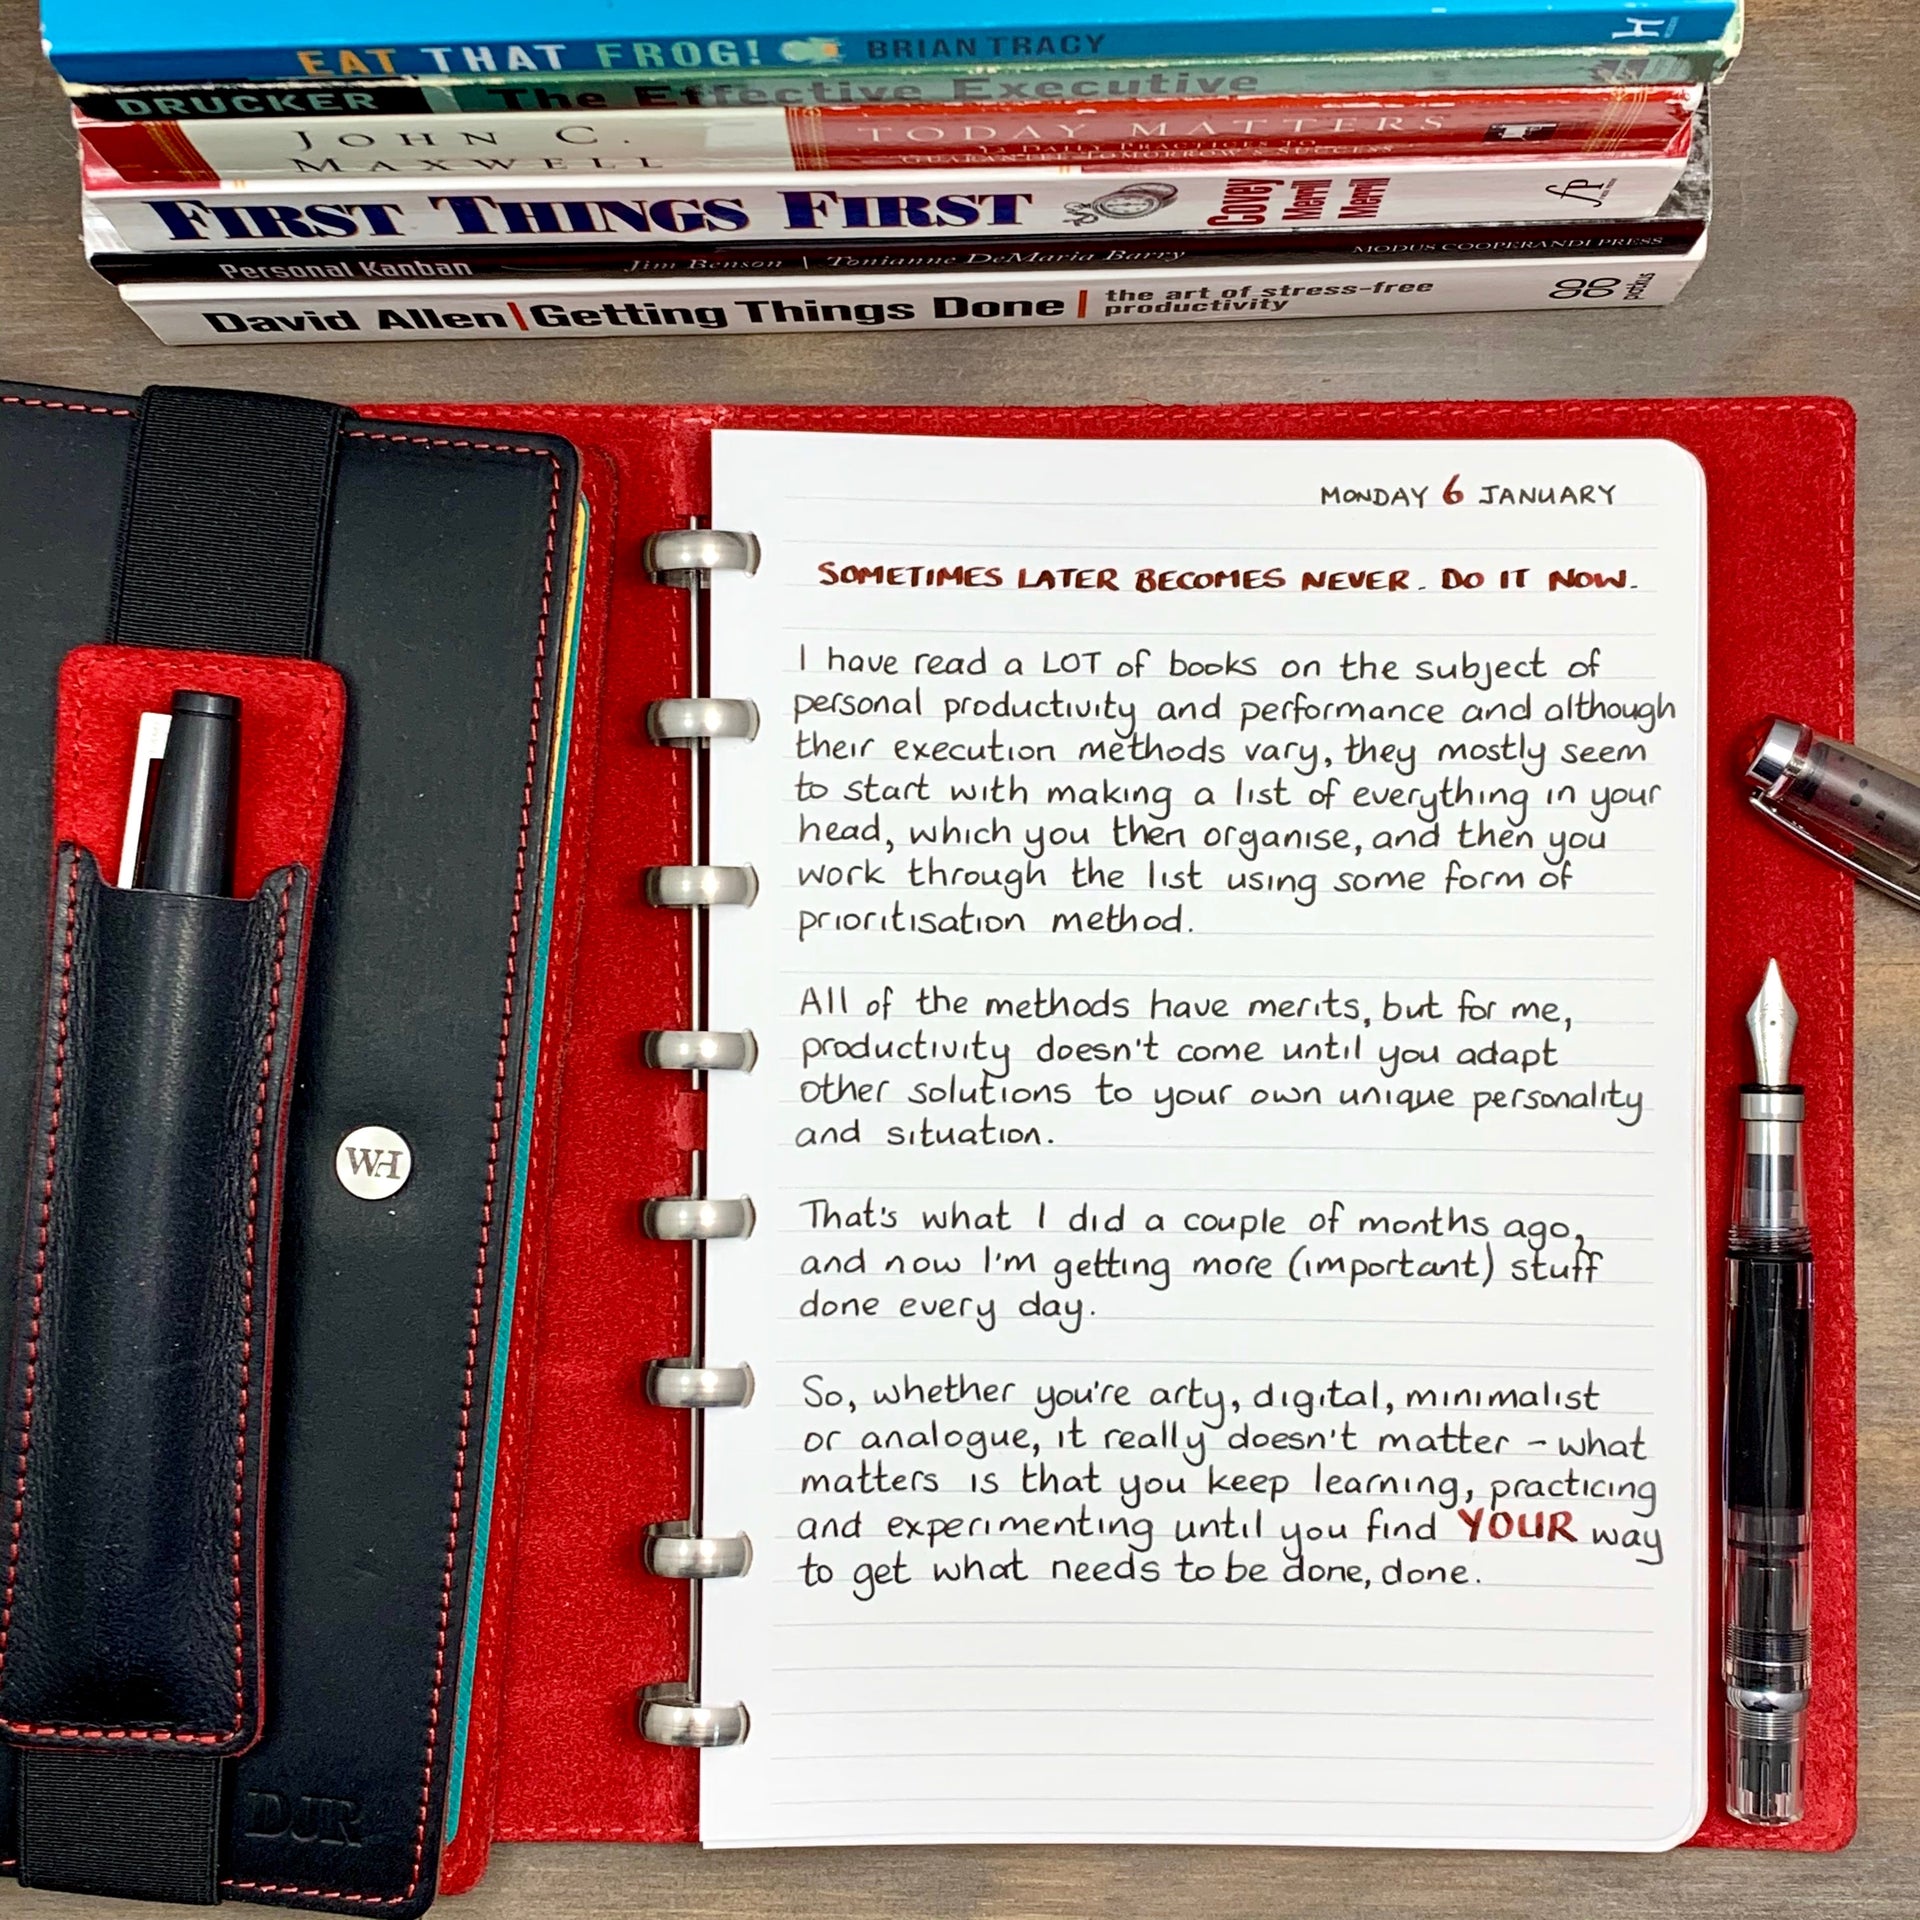 EAT THAT FROG! BRIAN TRACY
DRUCKER The Effective Executive
JOHN C. MAXWELL TODAY MATTERS
12 DAILY PRACTICES TO
GUARANTEE TOMORROW'S SUCCESS
FIRST THINGS FIRST Covey Merrill Merrill fp
Personal Kanban Jim Benson | Tonianne DeMaria Barry MODUS COOPERANDI PRESS
David Allen | Getting Things Done | the art of stress-free
productivity
piatkus
MONDAY 6 JANUARY
SOMETIMES LATER BECOMES NEVER. DO IT NOW.
I have read a LOT of books on the subject of
personal productivity and performance and although
their execution methods vary, they mostly seem
to start with making a list of everything in your
head, which you then organise, and then you
work through the list using some form of
prioritisation method.
All of the methods have merits, but for me,
productivity doesn't come until you adapt
other solutions to your own unique personality
and situation.
That's what I did a couple of months ago,
and now I'm getting more (important) stuff
done every day.
So, whether you're arty, digital, minimalist
or analogue, it really doesn't matter - what
matters is that you keep learning, practicing
and experimenting until you find YOUR way
to get what needs to be done, done.
WH
DJR